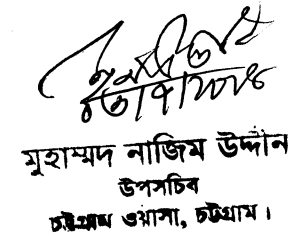 মুহাম্মদ নাজিম উদ্দীন
উপসচিব
চট্টগ্রাম ওয়াসা, চট্টগ্রাম।